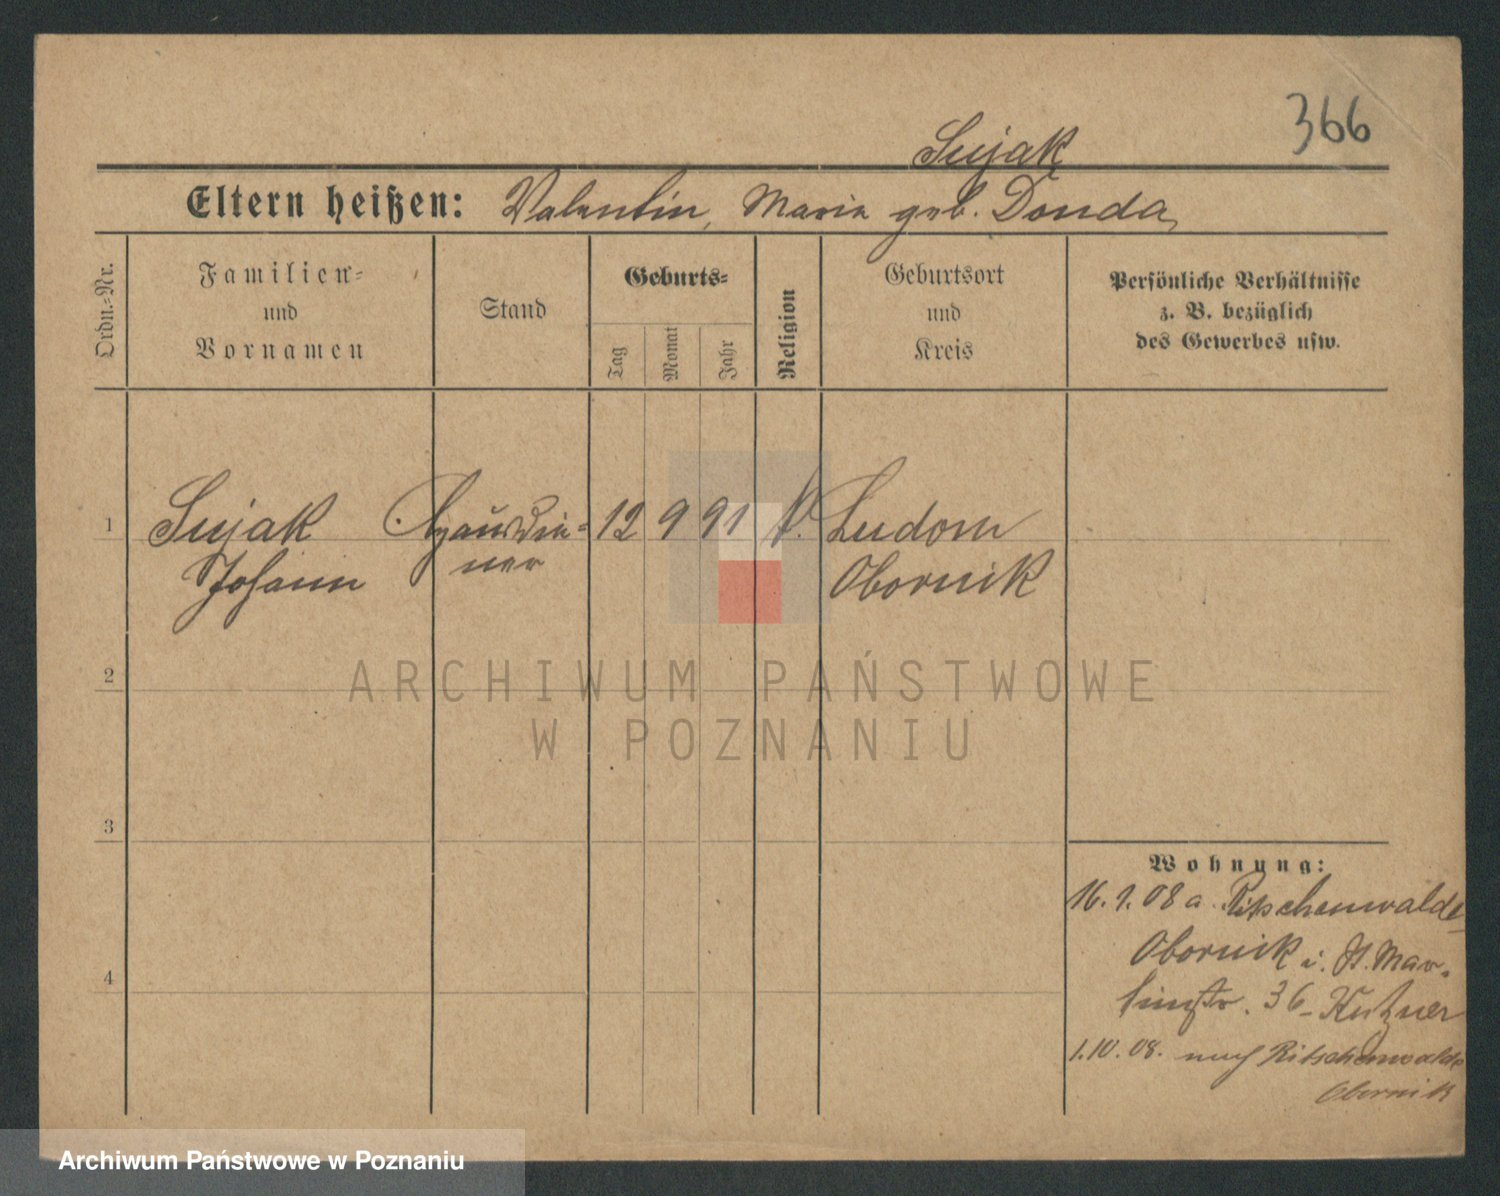 366
Sujak
Eltern heißen: Valentin, Maria geb. Donda
Ordn.-Nr.
Familien-
und
Vornamen
Stand
Geburts-
Tag
Monat
Jahr
Religion
Geburtsort
und
Kreis
Persönliche Verhältnisse
z. B. bezüglich
des Gewerbes usw.
1 Sujak Hausdie- 12 9 91 k. Ludom
Johann ner Obornik
2
ARCHIWUM PAŃSTWOWE
W POZNANIU
3
Wohnung:
16.1.08 a. Ritschenwalde
Obornik i. St. Mar-
4
tinstr. 36 - Kutzner
1.10.08. nach Ritschenwalde
Obornik
Archiwum Państwowe w Poznaniu